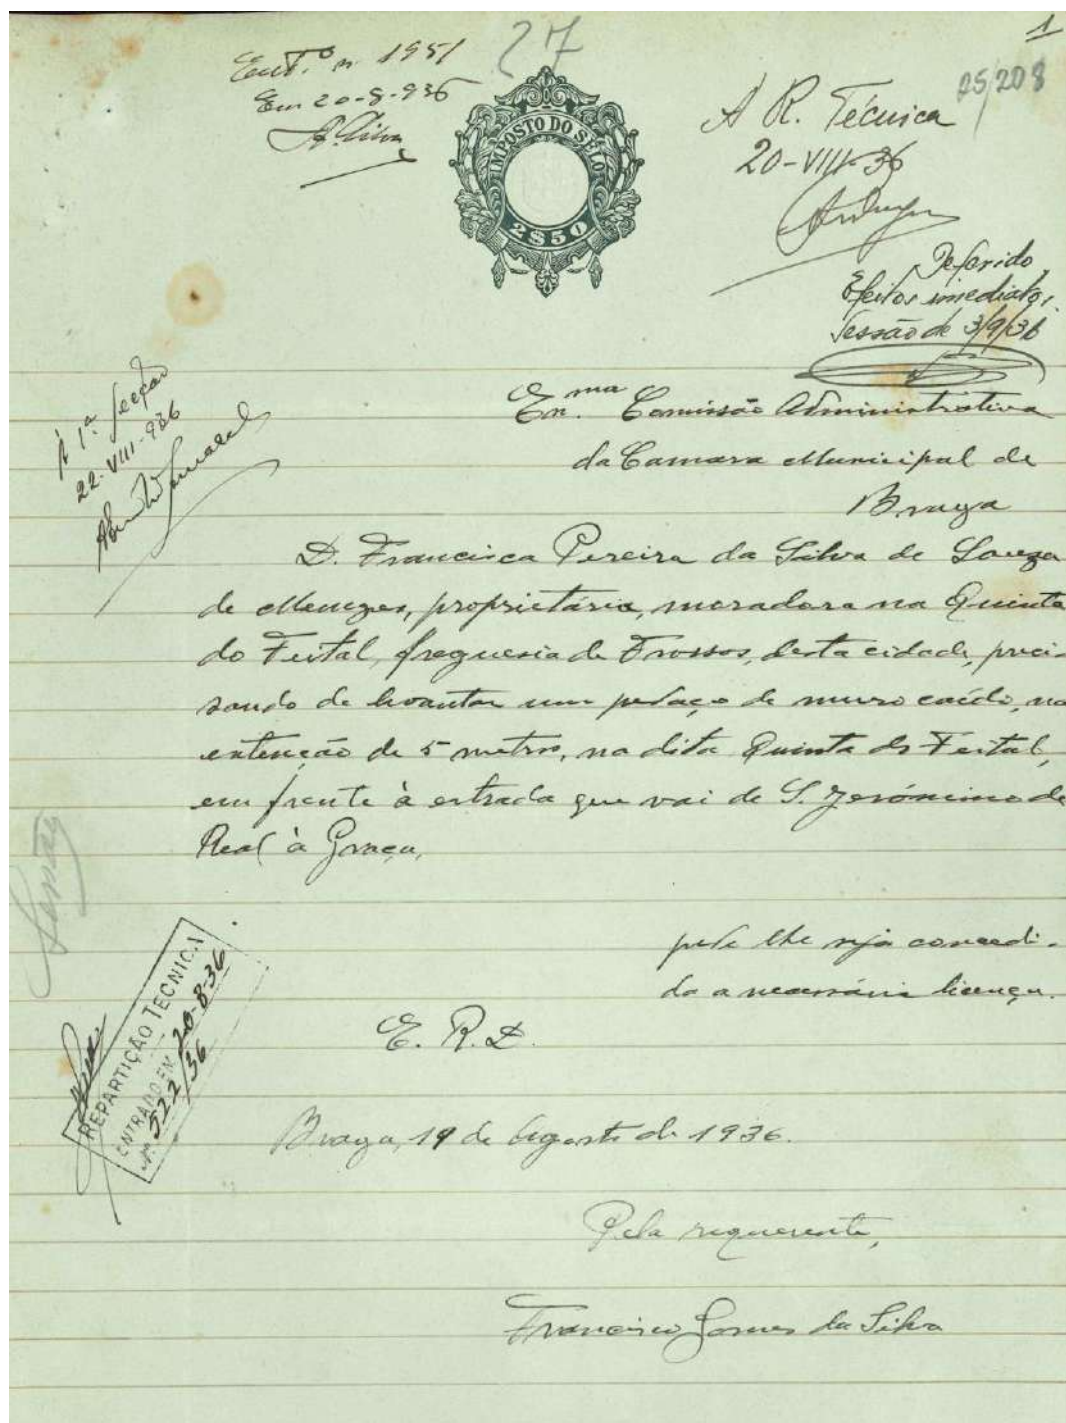 27
1
25/208
Ent.º n. 1951
Em 20-8-936
A. Silva
IMPOSTO DO SELO
2$50
A R. Técnica
20-VIII-36
Deferido,
Efeitos imediatos,
Sessão de 3/9/36
À 1ª Secção
22-VIII-936
Exma Comissão Administrativa
da Camara Municipal de
Braga
D. Francisca Pereira da Silva de Souza
de Menezes, proprietária, moradora na Quinta
do Feital, freguesia de Frossos, desta cidade, preci-
sando de levantar um pedaço de muro caído, na
extenção de 5 metros, na dita Quinta do Feital,
em frente à estrada que vai de S. Jerónimo de
Real à Graça,
pede lhe seja concedi-
do a necessária licença.
E. R. D.
REPARTIÇÃO TECNICA
ENTRADO EM 20-8-36
Nº 522/36
Braga, 19 de Agosto de 1936.
Pela requerente,
Francisco Gomes da Silva